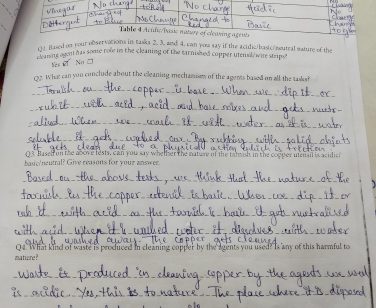 Vinegar No change to Red No change Acidic No change
Detergent to Blue No Change Changed to Red Basic
Table 4 Acidic/basic nature of cleaning agents
Q1. Based on your observations in tasks 2, 3, and 4, can you say if the acidic/basic/neutral nature of the
cleaning agent has some role in the cleaning of the tarnished copper utensil/wire strips?
Yes ☑ No ☐
Q2. What can you conclude about the cleaning mechanism of the agents based on all the tasks?
Tarnish on the copper is base. When we dip it or
rub it with acid, acid and base mixes and gets neutr-
alised. When we wash it with water as it is water
soluble it gets washed out. By rubbing with solid objects
it gets clean due to a physical action which is friction
Q3. Based on the above tests, can you say whether the nature of the tarnish in the copper utensil is acidic/
basic/neutral? Give reasons for your answer.
Based on the above tests, we think that the nature of the
tarnish in the copper utensil is basic. When we dip it or
rub it with acid as the tarnish is basic it got nutralised
with acid. When it is washed water it, disolves with water
and is washed away. The copper gets cleaned
Q4. What kind of waste is produced in cleaning copper by the agents you used? Is any of this harmful to
nature?
Waste is produced in cleaning copper by the agents we used
is acidic. Yes, this is to nature. The place where it is disposed